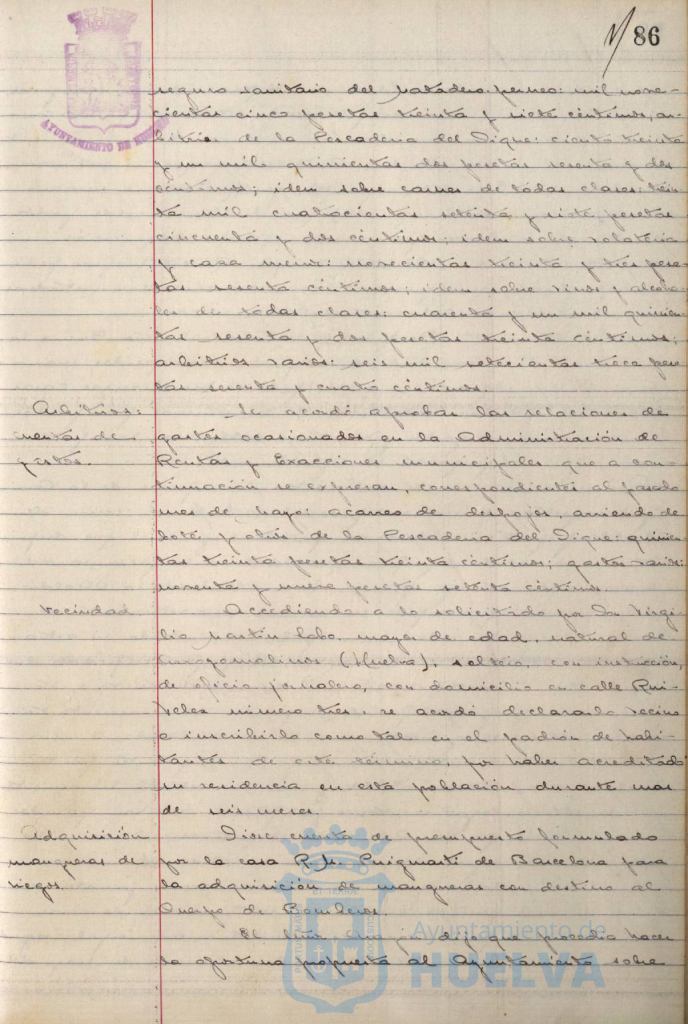 86
AYUNTAMIENTO DE HUELVA
seguro sanitario del matadero perneo: mil nove-
cientas cinco pesetas treinta y siete céntimos, ar-
bitrios de la Pescadería del Dique: ciento treinta
y un mil quinientas dos pesetas sesenta y dos
céntimos; idem sobre carnes de todas clases: trein-
ta mil cuatrocientas setenta y siete pesetas
cincuenta y dos céntimos; idem sobre volatería
y caza menor: novecientas treinta y tres pese-
tas sesenta céntimos; idem sobre vinos y alcoho-
les de todas clases: cuarenta y un mil quinien-
tas sesenta y dos pesetas treinta céntimos;
arbitrios varios: seis mil setecientas trece pese-
tas sesenta y cuatro céntimos.
Arbitrios:
cuentas de
gastos.
Se acordó aprobar las relaciones de
gastos ocasionados en la Administración de
Rentas y Exacciones municipales que a con-
tinuación se expresan, correspondientes al pasado
mes de Mayo: acarreo de despojos, arriendo de
bote y otros de la Pescadería del Dique: quinien-
tas treinta pesetas treinta céntimos; gastos varios:
noventa y nueve pesetas setenta céntimos.
Vecindad
Accediendo a lo solicitado por Don Virgi-
lio Martín Lobo, mayor de edad, natural de
(Huelva), soltero, con instrucción,
de oficio jornalero, con domicilio en calle Rui-
Velez número tres, se acordó declararlo vecino
e inscribirlo como tal en el padrón de habi-
tantes de este término, por haber acreditado
su residencia en esta población durante mas
de seis meses.
Adquisición
mangueras de
riegos.
Dióse cuenta de presupuesto formulado
por la casa R. Puigmartí de Barcelona para
la adquisición de mangueras con destino al
Cuerpo de Bomberos.
El Señor dijo que procedía hacer
la oportuna propuesta al Ayuntamiento sobre
Ayuntamiento de
HUELVA